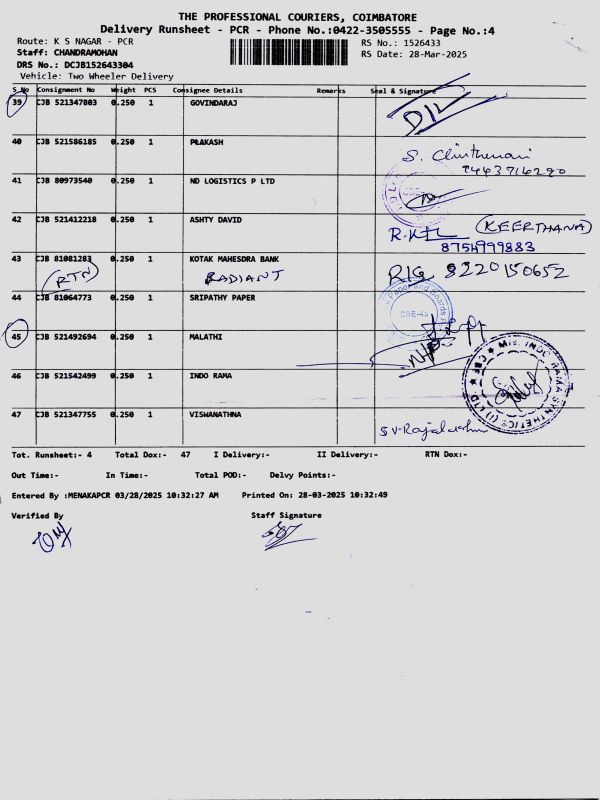 THE PROFESSIONAL COURIERS, COIMBATORE
Delivery Runsheet - PCR - Phone No.:0422-3505555 - Page No.:4
Route: K S NAGAR - PCR RS No.: 1526433
Staff: CHANDRAMOHAN RS Date: 28-Mar-2025
DRS No.: DCJB152643304
Vehicle: Two Wheeler Delivery
S No Consignment No Weight PCS Consignee Details Remarks Seal & Signature
39 CJB 521347803 0.250 1 GOVINDARAJ D/L
40 CJB 521586185 0.250 1 PLAKASH
41 CJB 80973540 0.250 1 ND LOGISTICS P LTD
42 CJB 521412218 0.250 1 ASHTY DAVID (KEERTHANA)
8754999883
43 CJB 81081283 0.250 1 KOTAK MAHESDRA BANK
(RTN) RADIANT 8220150652
44 CJB 81064773 0.250 1 SRIPATHY PAPER CBE-45
45 CJB 521492694 0.250 1 MALATHI
46 CJB 521542499 0.250 1 INDO RAMA M/S. INDO RAMA SYNTHETICS (I) LTD ★ CBE ★
47 CJB 521347755 0.250 1 VISWANATHNA
Tot. Runsheet:- 4 Total Dox:- 47 I Delivery:- II Delivery:- RTN Dox:-
Out Time:- In Time:- Total POD:- Delvy Points:-
Entered By :MENAKAPCR 03/28/2025 10:32:27 AM Printed On: 28-03-2025 10:32:49
Verified By Staff Signature